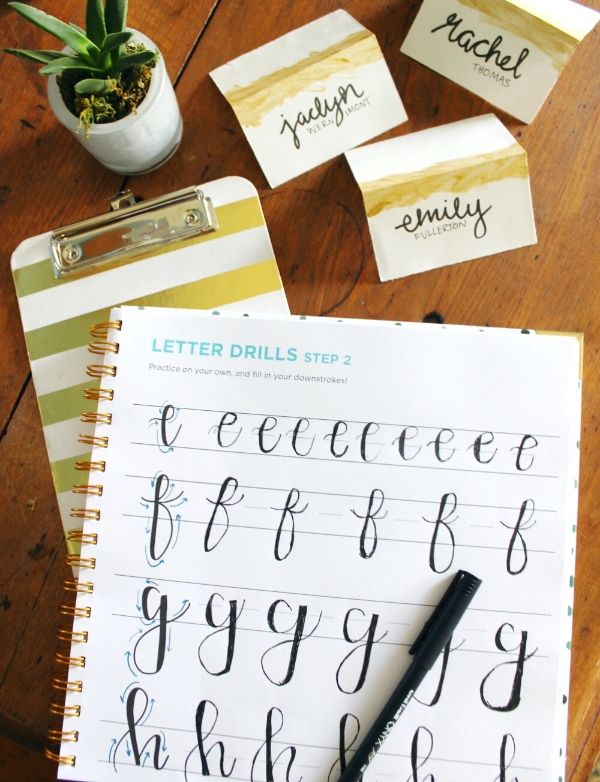 jaclyn
WERNIMONT
rachel
THOMAS
emily
FULLERTON
LETTER DRILLS STEP 2
Practice on your own, and fill in your downstrokes!
e e e e e e e e e e
f f f f f f
g g g g g g
h h h h h h
ONYX